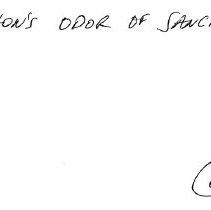 ION'S ODOR OF SANC